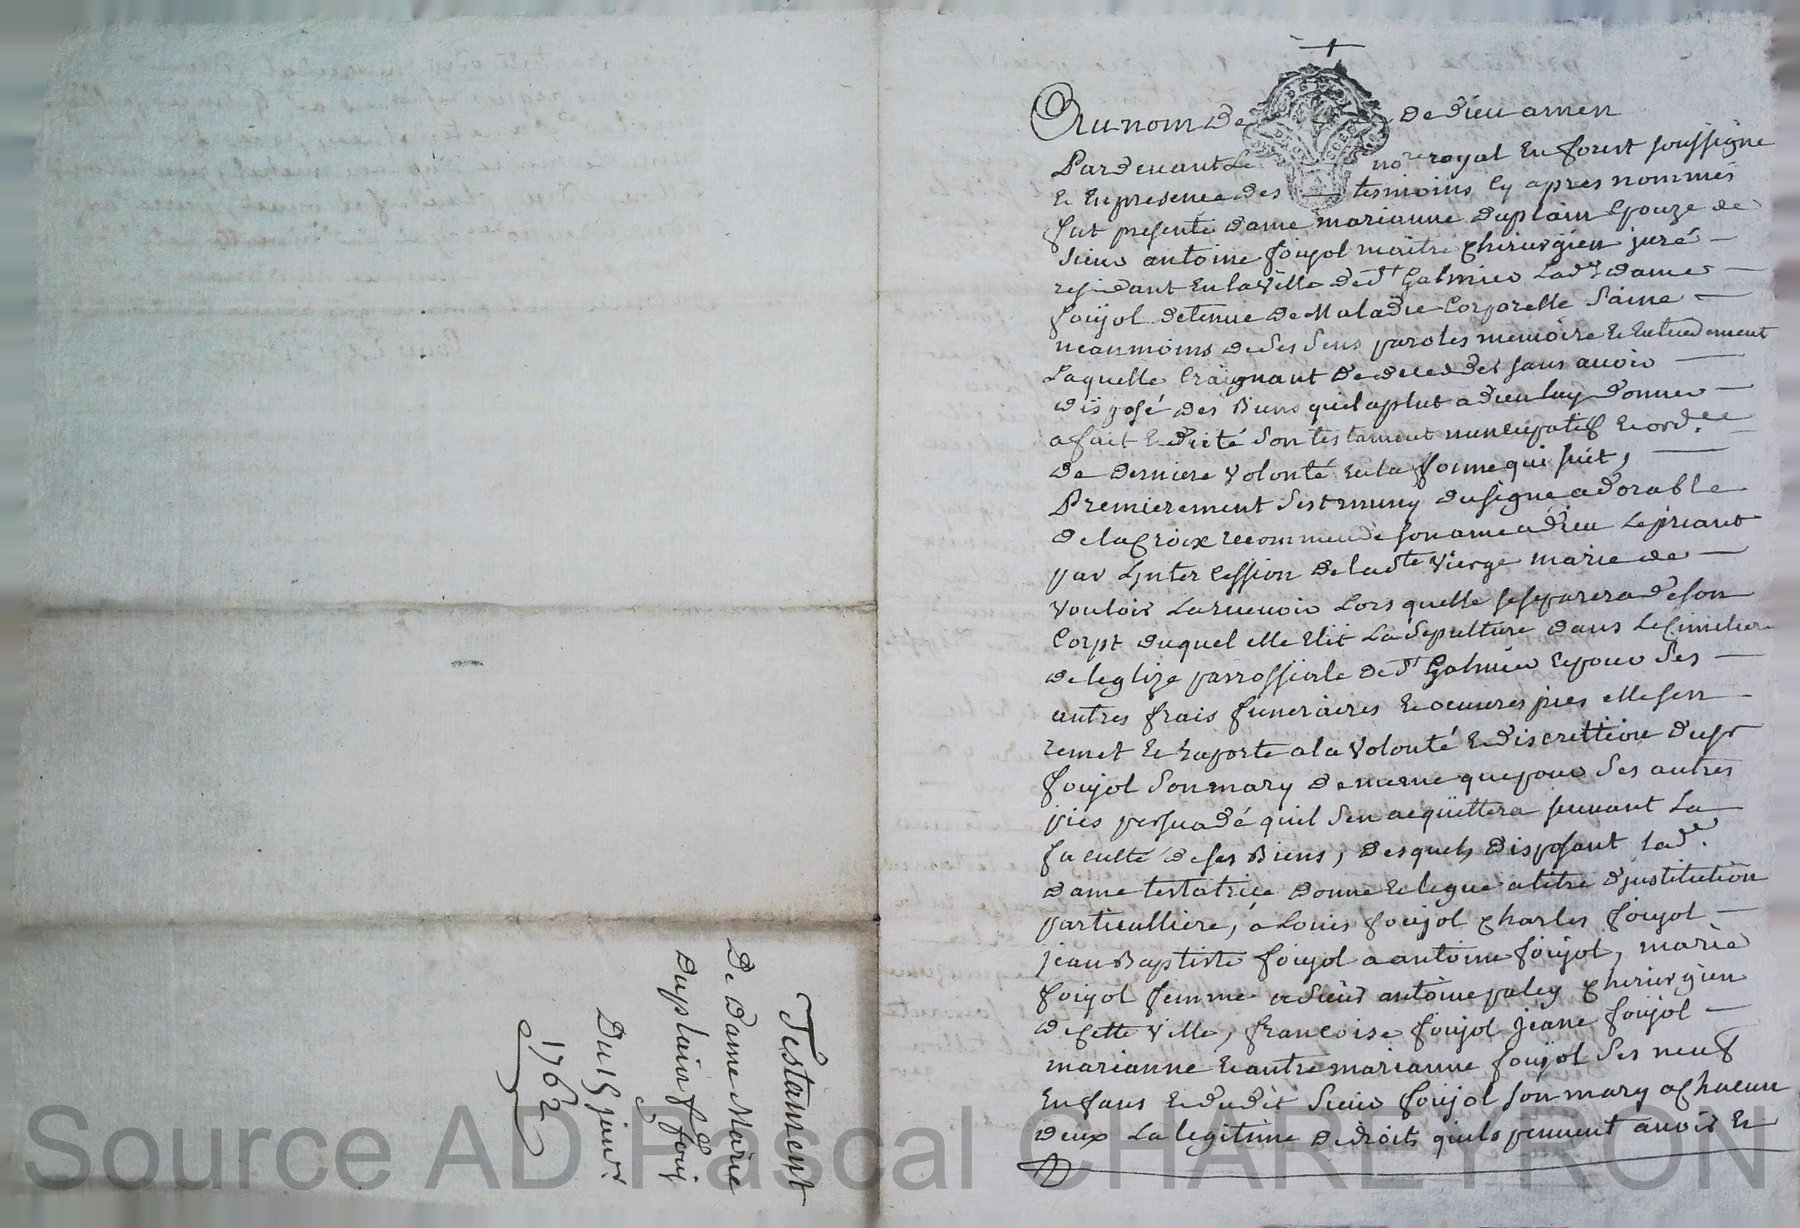 Testament
De Dame Marie
Duplain f.e fouj
Du 15 janv.r
1762
Au nom de de dieu amen
Pardevant Le no.re royal En forest soussigné
& En presence des tesmoins Cy apres nommés
fut presente dame marianne duplain Epouze de
sieur antoine foujol maitre chirurgien juré
residant En la Ville de St Galmier Lad.e dame
foujol detenue de Maladie Corporelle Saine
neanmoins de ses sens paroles memoire & Entendement
Laquelle Craignant de deceder sans avoir
disposé des Biens quil a plut a dieu luy donner
a fait & dicté son testament nuncupatif & ord.ce
de derniere Volonté En la forme qui suit,
Premierement sest muny du signe adorable
de la Croix recommandé son ame a dieu Le priant
par Lynter Cession de la Ste Vierge marie de
Vouloir La recevoir Lors quelle se separera de son
Corpt duquel elle Elit La Sepulture dans Le Cimetiere
de leglize parrossialle de St Galmier & pour ses
autres frais funeraires & oeuvres pies elle sen
remet & raporte a la Volonté & discrettion du sr
foujol son mary de meme que pour ses autres
pies persuadé quil sen acquittera suivant La
faculté de ses Biens, desquels disposant Lad.e
dame testatrice donne & legue a titre dynstitution
particulliere, a Louis foujol Charles foujol
jean Baptiste foujol a antoine foujol, marie
foujol femme a sieur antoine paley Chirurgien
de cette Ville, francoise foujol Jeane foujol
marianne & autre marianne foujol ses neuf
Enfans & dudit sieur foujol son mary a chacun
deux La legitime & droits quils peuvent avoir &
Source AD Pascal CHAREYRON